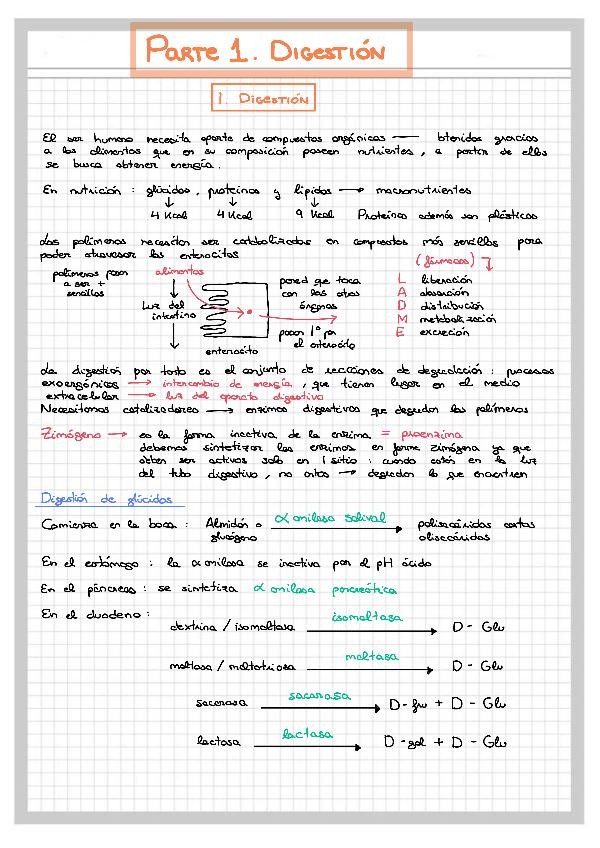 PARTE 1. DIGESTIÓN
1. DIGESTIÓN
El ser humano necesita aporte de compuestos orgánicos — btenidos gracias
a los alimentos que en su composición poseen nutrientes, a partir de ellos
se busca obtener energía.
En nutrición : glúcidos, proteínas y lípidos → macronutrientes
↓ ↓ ↓
4 Kcal 4 Kcal 9 Kcal Proteínas además son plásticas
Los polímeros necesitan ser catabolizados en compuestos más sencillos para
poder atravesar los enterocitos
(fármacos)
polímeros pasan
a ser +
sencillos
alimentos
Luz del
intestino
enterocito
pared que toca
con los otros
órganos
pasan 1º por
el enterocito
L liberación
A absorción
D distribución
M metabolización
E excreción
La digestión por tanto es el conjunto de reacciones de degradación : procesos
exoergónicos → intercambio de energía, que tienen lugar en el medio
extracelular → luz del aparato digestivo
Necesitamos catalizadores → enzimas digestivas que degradan los polímeros
Zimógeno → es la forma inactiva de la enzima = proenzima
debemos sintetizar las enzimas en forma zimógena ya que
deben ser activas solo en 1 sitio : cuando estés en la luz
del tubo digestivo, no antes → degradan lo que encuentren
Digestión de glúcidos
Comienza en la boca : Almidón o α amilasa salival → polisacáridos cortos
glucógeno oligosacáridos
En el estómago : la α amilasa se inactiva por el pH ácido
En el páncreas : se sintetiza α amilasa pancreática
En el duodeno :
dextrina / isomaltosa isomaltasa → D - Glu
maltosa / maltotriosa maltasa → D - Glu
sacarosa sacarasa → D - fru + D - Glu
lactosa lactasa → D - gal + D - Glu